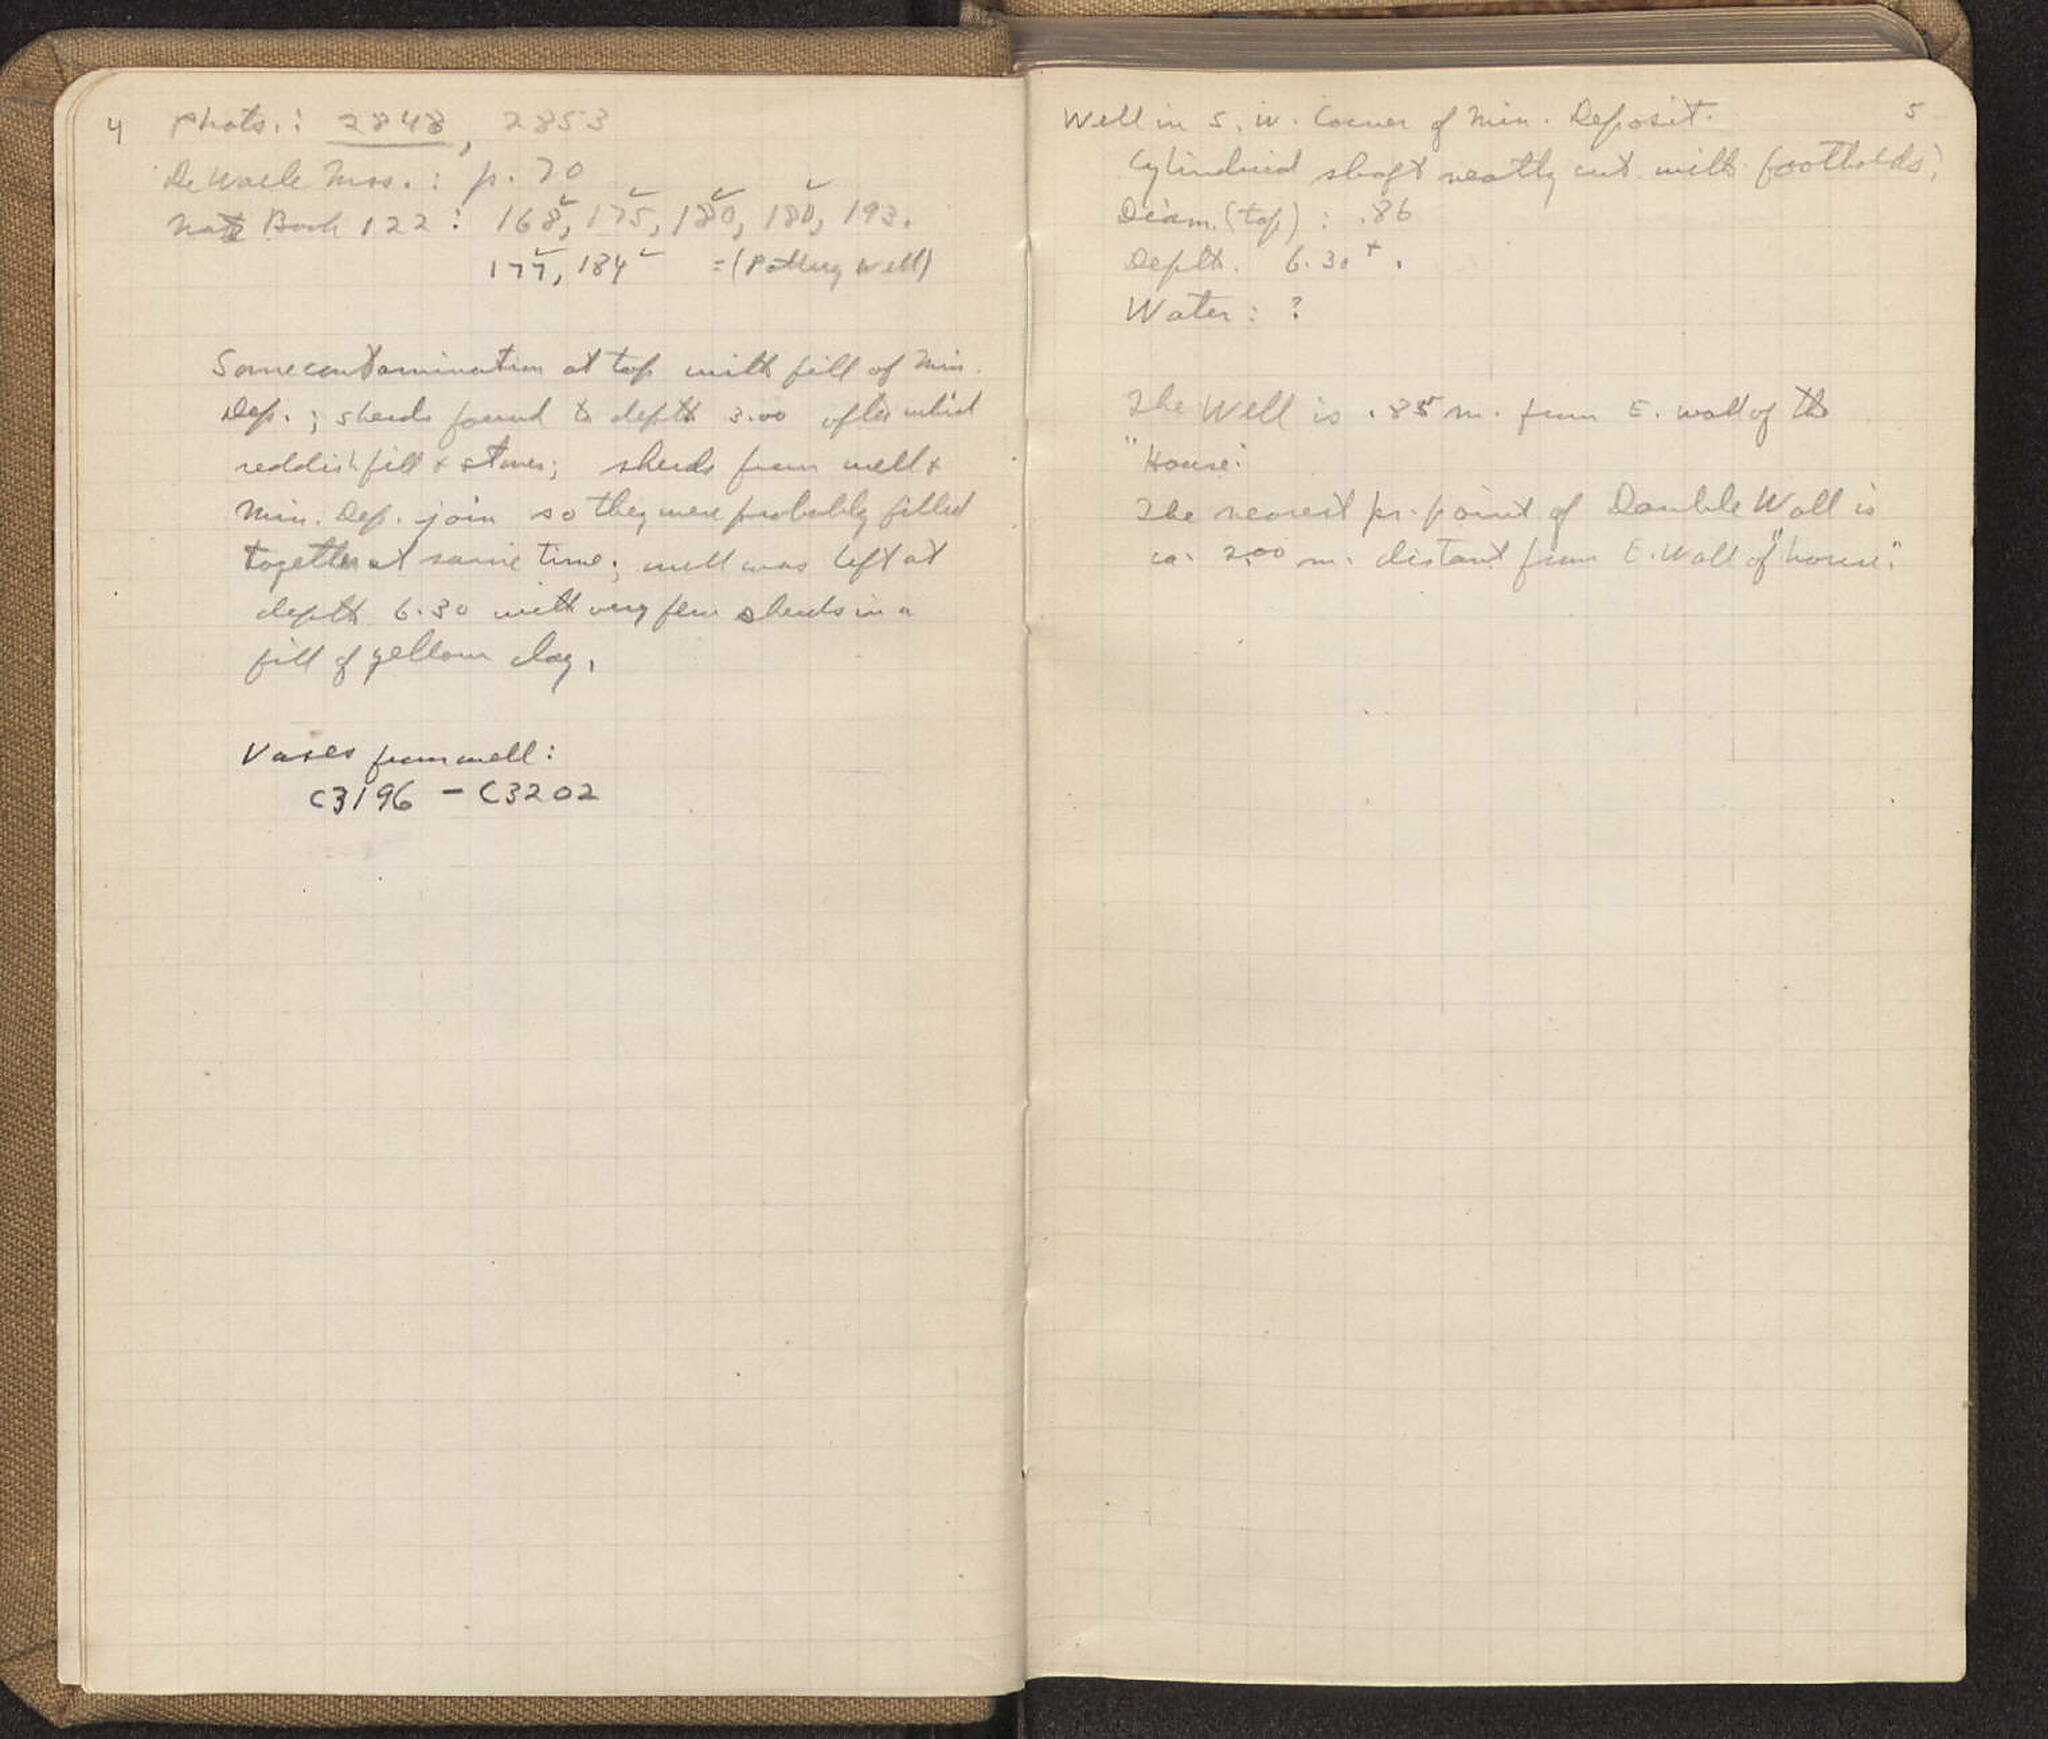 4
Phots.: 2848, 2853
De Waele Mss.: p. 70
Note Book 122: 168, 175, 180, 180, 193.
177, 184 = (Pottery Well)
Some contamination at top with fill of Min.
Dep.; sherds found to depth 3.00 after which
reddish fill & stones; sherds from well &
Min. Dep. join so they were probably filled
together at same time; well was left at
depth 6.30 with very few sherds in a
fill of yellow clay.
Vases from well:
C3196 - C3202
5
Well in S.W. Corner of Min. Deposit.
Cylindrical shaft neatly cut with footholds;
Diam. (top): .86
Depth. 6.30+.
Water: ?
The Well is .85 m. from E. wall of the
"House."
The nearest pr. point of Double Wall is
ca. 2.00 m. distant from E. Wall of "house."